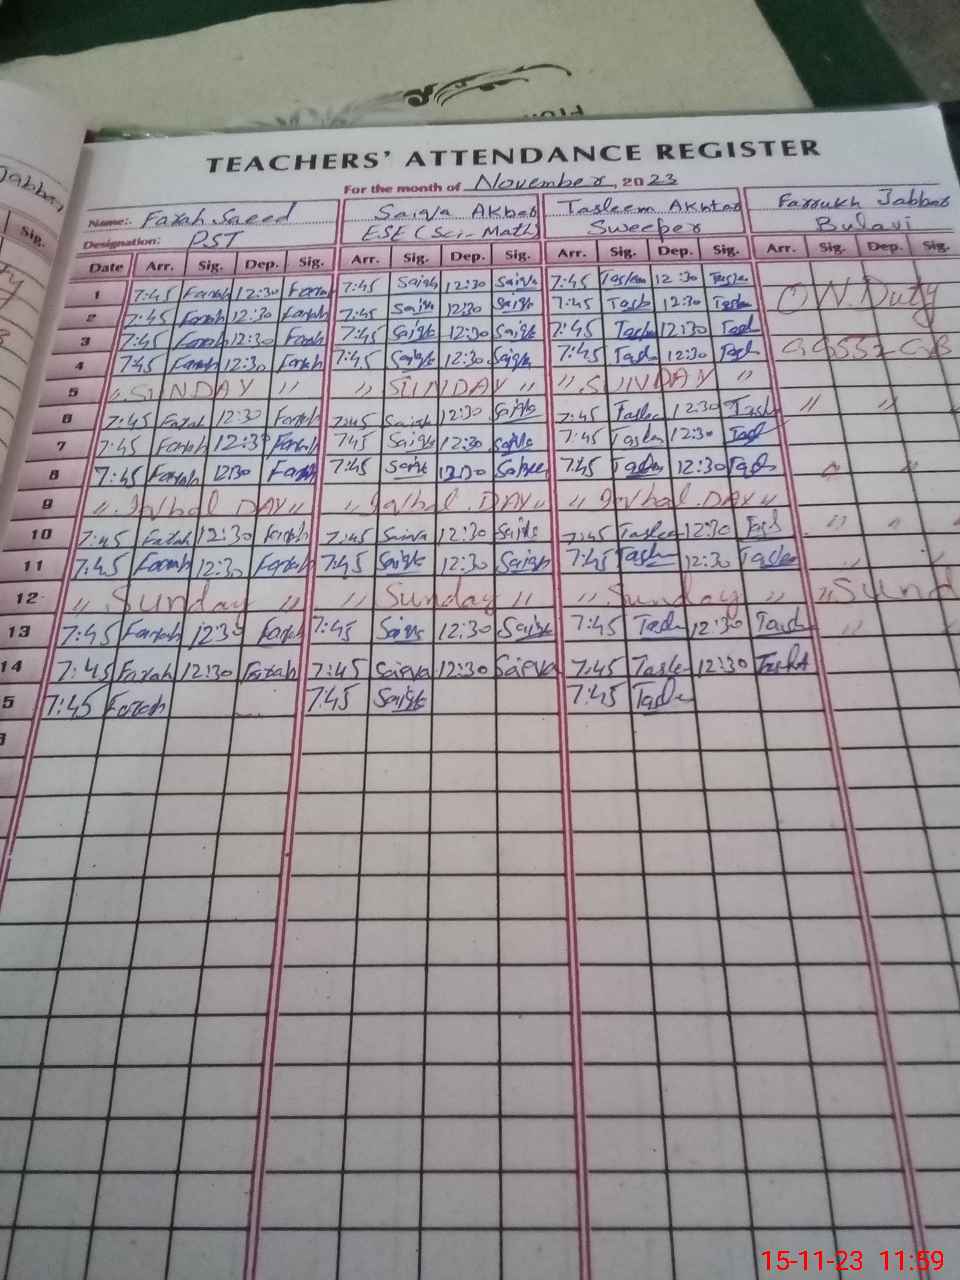 TEACHERS' ATTENDANCE REGISTER
For the month of November, 2023
Name: Farah Saeed Saira Akbar Tasleem Akhtar Farrukh Jabbar
Designation: PST ESE (Sci-Math) Sweeper
Date Arr. Sig. Dep. Sig. Arr. Sig. Dep. Sig. Arr. Sig. Dep. Sig. Arr. Sig. Dep. Sig.
1 7:45 Farah 12:30 Farah 7:45 Saira 12:30 Saira 7:45 Tasleem 12:30 Tasle
2 7:45 Farah 12:30 Farah 7:45 Saira 12:30 Saira 7:45 Tasle 12:30 Tasle ON. Duty
3 7:45 Farah 12:30 Farah 7:45 Saira 12:30 Saira 7:45 Tasle 12:30 Tasl
4 7:45 Farah 12:30 Farah 7:45 Saira 12:30 Saira 7:45 Tasl 12:30 Tasl
5 " SUNDAY " " SUNDAY " " SUNDAY "
6 7:45 Farah 12:30 Farah 7:45 Saira 12:30 Saira 7:45 Taslee 12:30 Tasle " "
7 7:45 Farah 12:30 Farah 7:45 Saira 12:30 Saira 7:45 Taslee 12:30 Tasl
8 7:45 Farah 12:30 Farah 7:45 Saira 12:30 7:45 Tasle 12:30 Tasle " "
9 " Iqbal DAY " " Iqbal. DAY " " Iqbal. DAY "
10 7:45 Farah 12:30 Farah 7:45 Saira 12:30 Saira 7:45 Taslee 12:30 Tasl " "
11 7:45 Farah 12:30 Farah 7:45 Saira 12:30 Saira 7:45 Tasle 12:30 Tasle " "
12 " Sunday " " Sunday " " Sunday " " Sund
13 7:45 Farah 12:30 Farah 7:45 Saira 12:30 Saira 7:45 Tasle 12:30 Tasle " "
14 7:45 Farah 12:30 Farah 7:45 Saira 12:30 Saira 7:45 Tasle 12:30 Tasle
5 7:45 Farah 7:45 Saira 7:45 Tasle
15-11-23 11:59